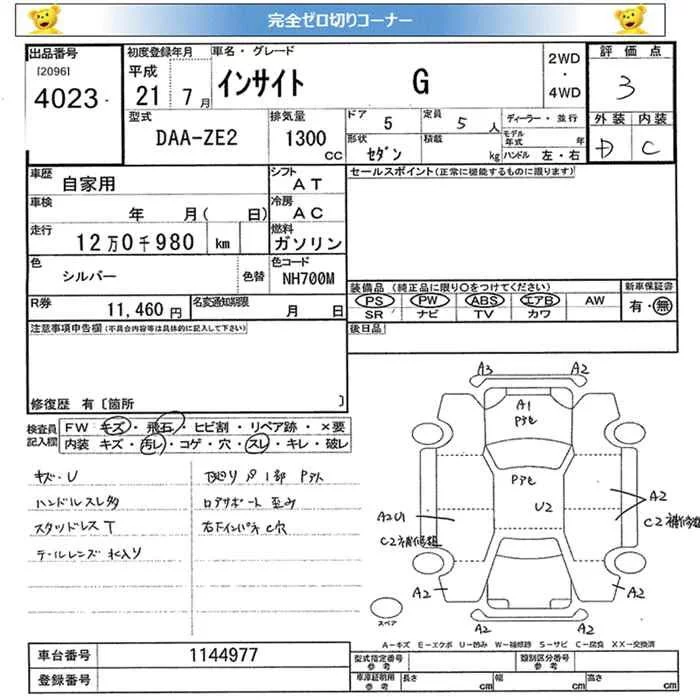 完全ゼロ切りコーナー
出品番号
[2096]
4023
初度登録年月
平成
21年 7月
車名・グレード
インサイト G
2WD
・
4WD
評価点
3
外装 内装
D C
型式
DAA-ZE2
排気量
1300
CC
ドア
5
定員
5人
形状
セダン
積載
kg
ディーラー・並行
モデル年式 年
ハンドル 左・右
車歴
自家用
シフト
AT
車検
年 月( 日)
冷房
AC
走行
12万0千980 km
燃料
ガソリン
色
シルバー
色替
色コード
NH700M
R券
11,460円
名変通知期限
月 日
セールスポイント(正常に機能するものに限ります)
装備品 (純正品に限り○をつけてください)
新車保証書
PS PW ABS エアB AW
有・無
SR ナビ TV カワ
後日品
注意事項申告欄(不具合内容等は具体的に記入して下さい)
修復歴 有〔箇所 〕
検査員記入欄
FW キズ・飛石・ヒビ割・リペア跡・×要
内装 キズ・汚レ・コゲ・穴・スレ・キレ・破レ
キズ・U
ハンドルスレ多
スタッドレスT
テールレンズ 水入り
ロアサポート 歪み
右下インパネ ビ穴
A3 A2
A1
Pアセ
Pアセ
U2
A2
C2 補修跡
A2U1
C2 補修跡
A2 A2
A2 A2
スペア
A−キズ E−エクボ U−凹み W−補修跡 S−サビ C−腐食 XX−交換済
車台番号
1144977
登録番号
型式指定番号
参考
類別区分番号
参考
車庫証明用
参考
長さ cm
幅 cm
高さ cm